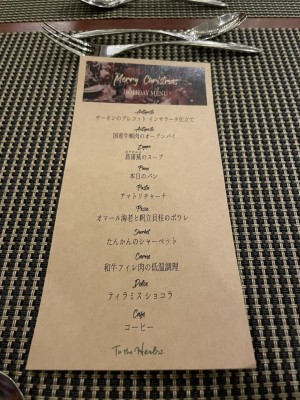 Merry Christmas
HOLIDAY MENU
Antipasto
サーモンのブレゼット インサラータ仕立て
Antipasto
国産牛頬肉のオーブンパイ
Zuppa
菖蒲風のスープ
Pane
本日のパン
Pasta
アマトリチャーナ
Pesce
オマール海老と帆立貝柱のポワレ
Sorbet
たんかんのシャーベット
Carne
和牛フィレ肉の低温調理
Dolce
ティラミス ショコラ
Cafe
コーヒー
To the Herbs